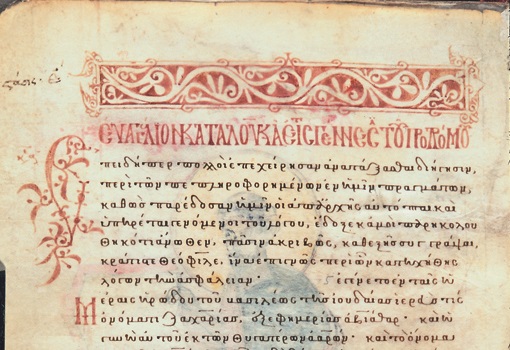 στάσις· Ε
ΕΥΑΓΛΙΟΝ ΚΑΤΑ ΛΟΥΚΑ ΕΙΣ Τ ΓΕΝΝΕΣ ΤΟΥ ΠΡΟΔΡΟΜΟΥ
Ἐπειδήπερ πολλοὶ ἐπεχείρησαν ἀνατάξασθαι διήγησιν,
περὶ τῶν πεπληροφορημένων ἐν ἡμῖν πραγμάτων,
καθὼς παρέδοσαν ἡμῖν οἱ ἀπ' ἀρχῆς αὐτόπται καὶ
ὑπηρέται γενόμενοι τοῦ λόγου, ἔδοξε κἀμοὶ παρηκολου
θηκότι ἄνωθεν, πᾶσιν ἀκριβῶς, καθεξῆς σοι γράψαι,
κράτιστε Θεόφιλε, ἵνα ἐπιγνῶς περὶ ὧν κατηχήθης
λόγων τὴν ἀσφάλειαν· Ἐγένετο ἐν ταῖς ἡ
μέραις ἡρώδου τοῦ βασιλέως τῆς ἰουδαίας ἱερεύς τις
ὀνόματι ζαχαρίας, ἐξ ἐφημερίας ἀβιά· καὶ ἡ
γυνὴ αὐτοῦ ἐκ τῶν θυγατέρων ἀαρών· καὶ τὸ ὄνομα